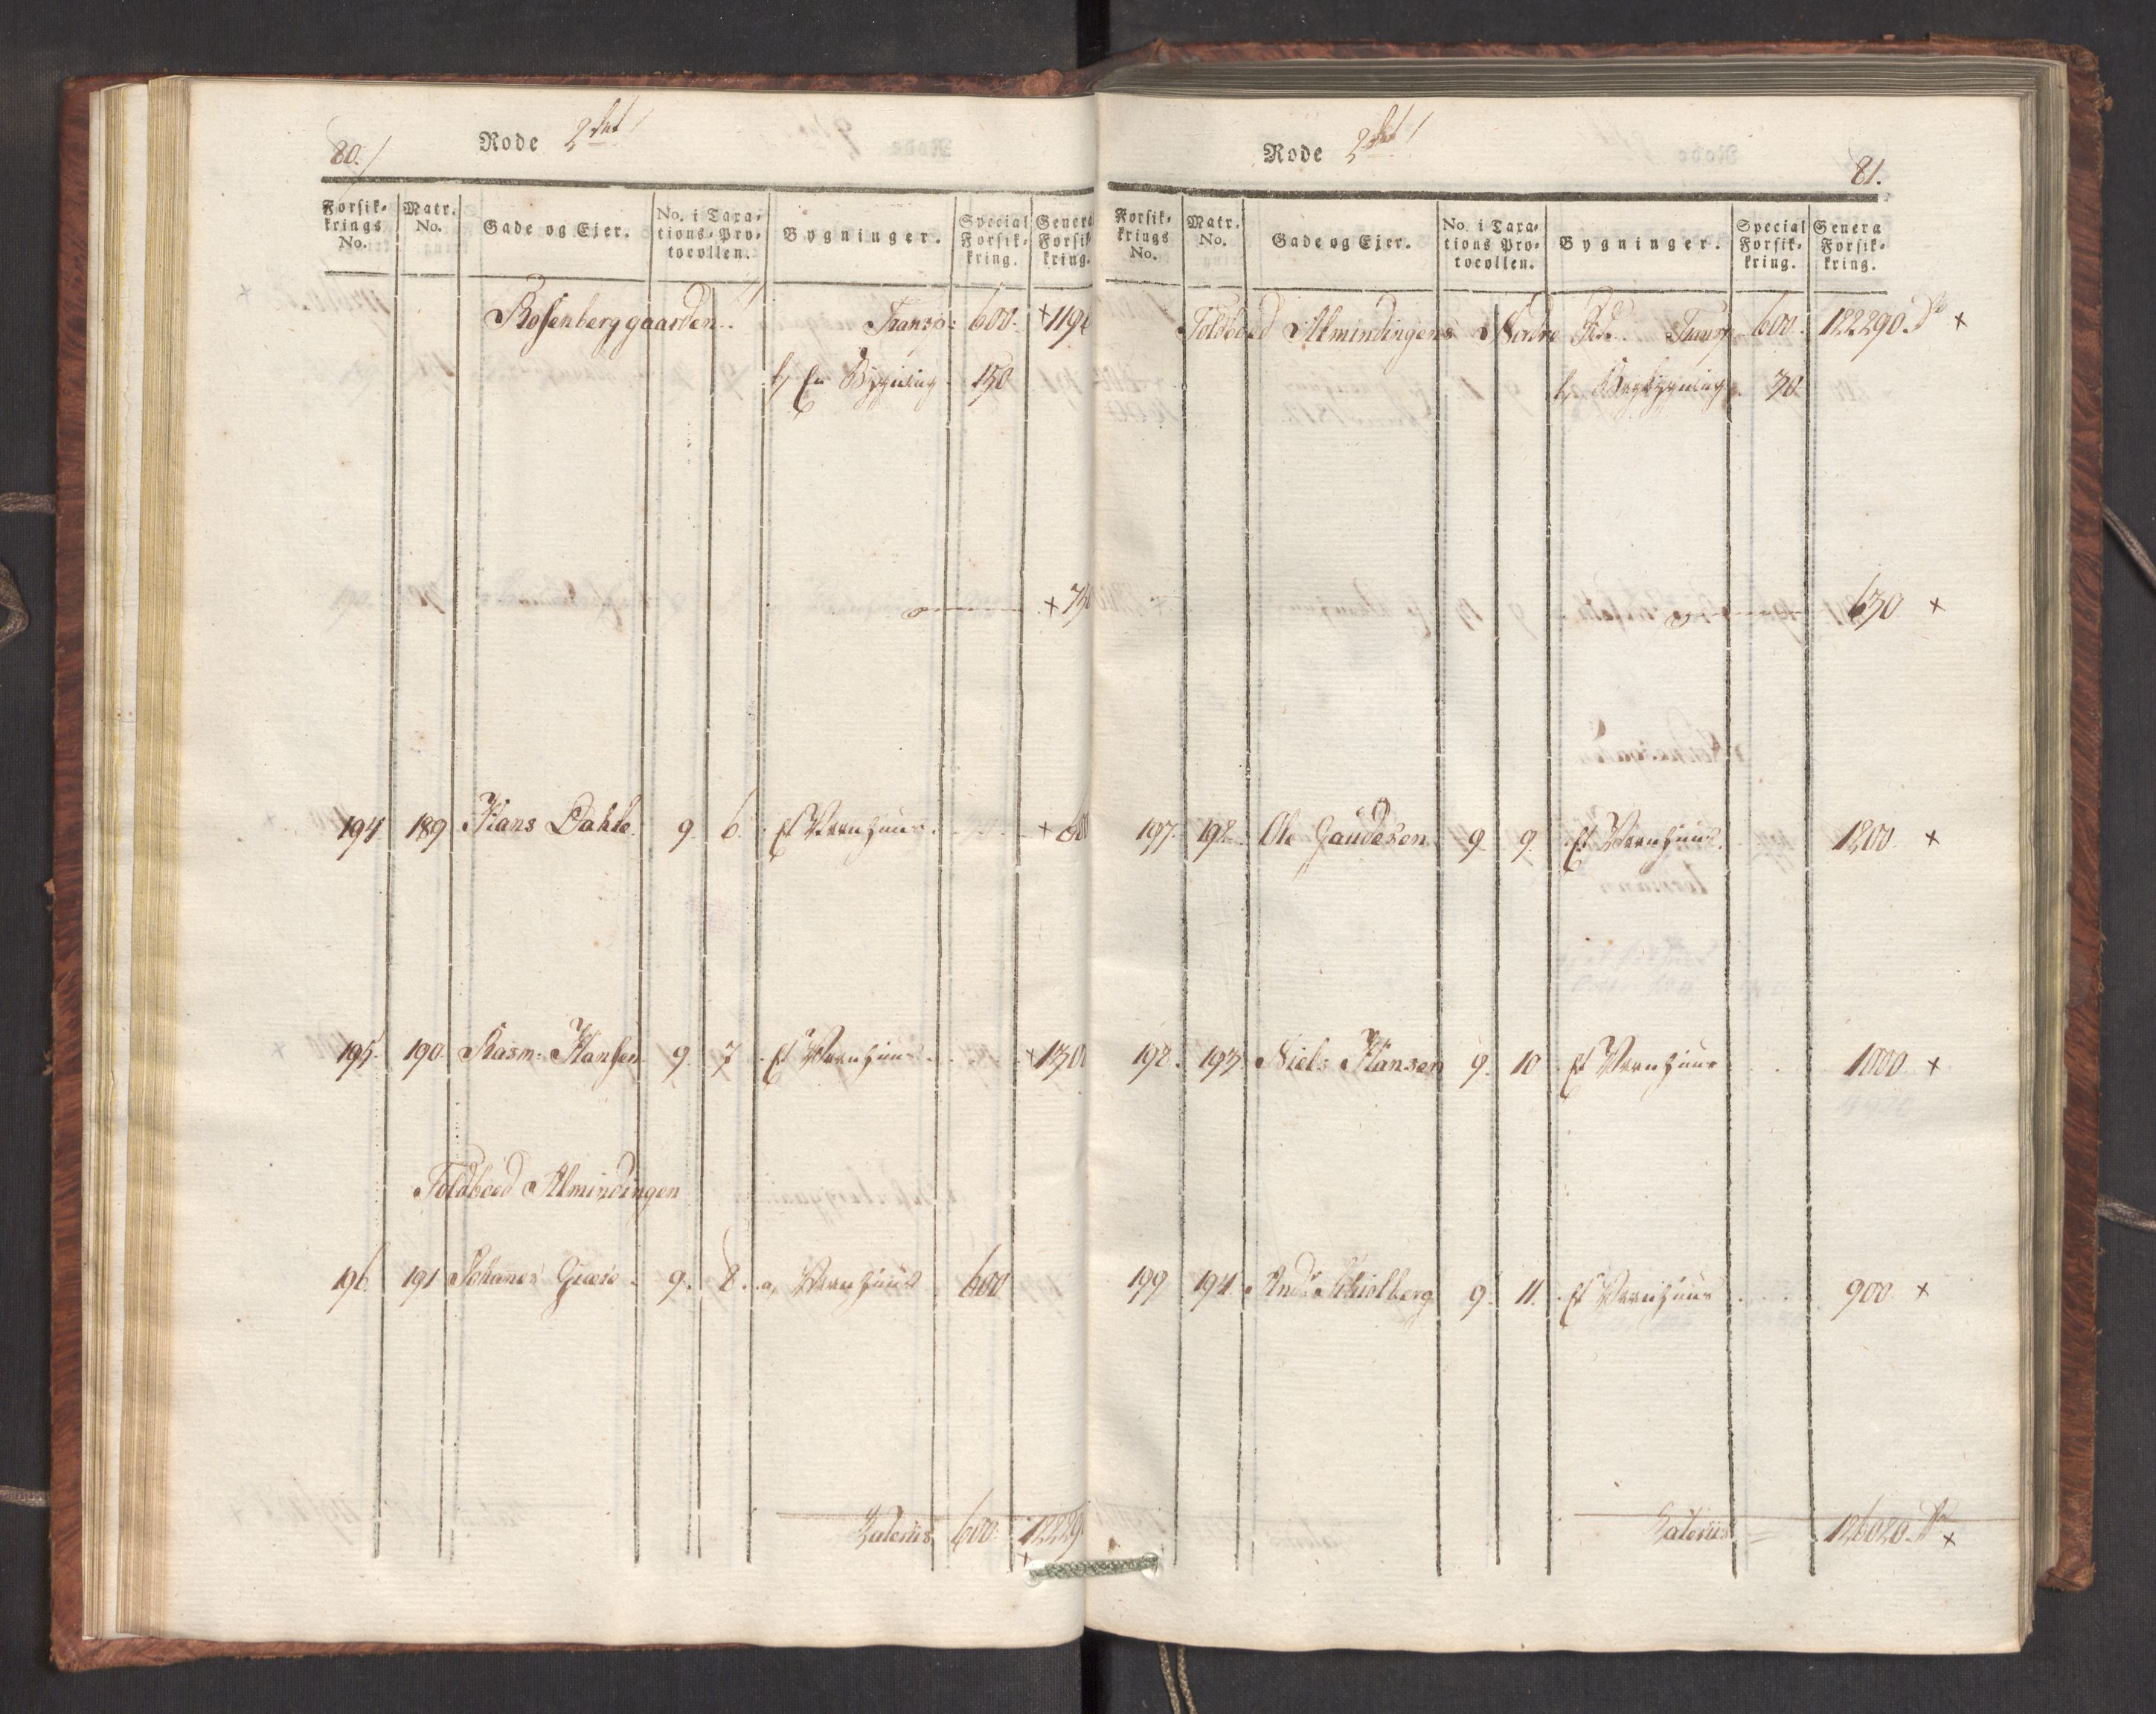 80./
Rode 2det
Forsik-
krings
No.
Matr.
No.
Gade og Ejer.
No. i Taxa-
tions-Pro-
tocollen.
Bygninger.
Special
Forsik-
kring.
Genera
Forsik
kring.
Rosenberggaarden. Transp: 600. × 119
b, En Bygning 150
× 75
194 189 Hans Dahle 9. 6. Et Vaanhuus. × 60
195. 190. Rasm: Hansen 9. 7. Et Vaanhuus. × 130
Toldboed Almindingen
196. 191 Johanes 9. 8. a, Vaanhuus 600
Lateriis 600. 12229
×
Rode 2det
81.
Forsik-
krings
No.
Matr.
No.
Gade og Ejer.
No. i Taxa-
tions Pro-
tocollen.
Bygninger.
Special
Forsik-
kring.
Genera
Forsik-
kring.
Toldboed Almindingens Nordre Side. Transp 600. 122290. ×
b, 30.
630 ×
197. 192. Ole Gaudesen 9. 9. Et Vaanhuus. 1200. ×
198. 193. Niels Hansen 9. 10. Et Vaanhuus 1000 ×
199 194. Andr 9. 11. Et Vaanhuus 900 ×
Lateriis 126020. ×